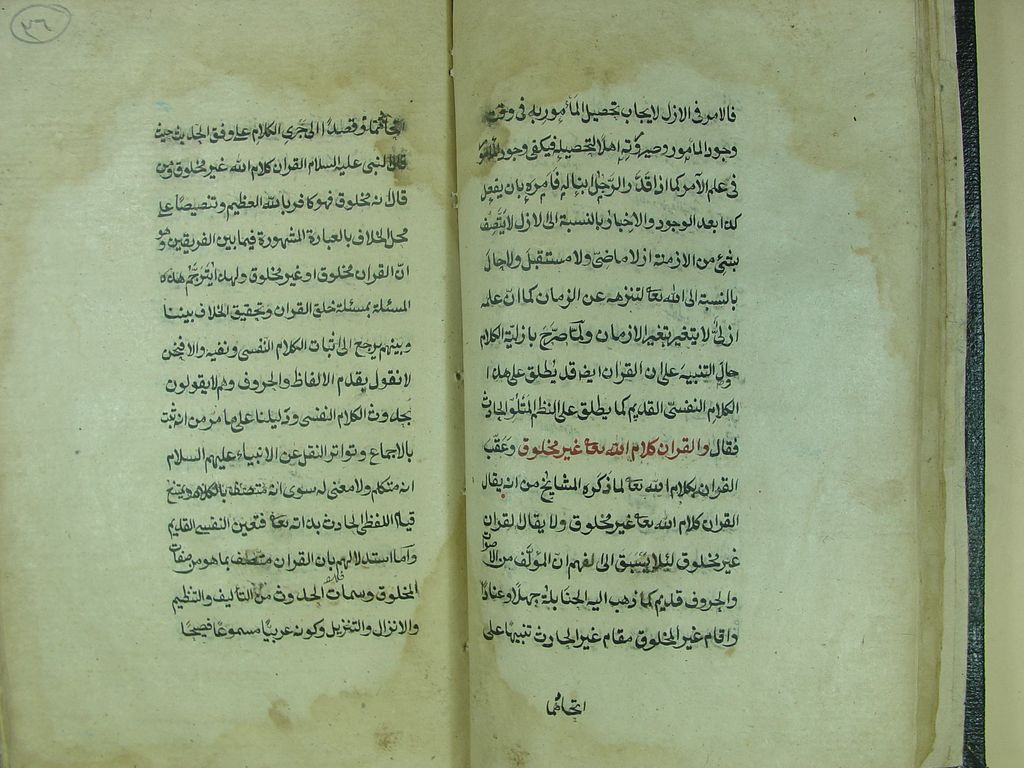 فالامر فى الازل لايجاب تحصيل المأمور به فى وقت
وجود المأمور وصيرورته اهلا لتحصيله فيكفى وجود المأمور
فى علم الآمر كما اذا قدر الرجل ابنا له فأمره بان يفعل
كذا بعد الوجود والاخبار بالنسبة الى الازل لا يتصف
بشئ من الازمنة اذ لا ماضى ولا مستقبل ولا حال
بالنسبة الى الله تعا لتنزهه عن الزمان كما ان علمه
ازلى لا يتغير بتغير الازمان ولما صرح بازلية الكلام
حاول التنبيه على ان القران ايضا قد يطلق على هذا
الكلام النفسى القديم كما يطلق على النظم المتلو الحادث
فقال والقران كلام الله تعا غير مخلوق وعقب
القران بكلام الله تعا لما ذكره المشايخ من انه يقال
القران كلام الله تعا غير مخلوق ولا يقال القران
غير مخلوق لئلا يسبق الى الفهم ان المؤلف من الاصوات
والحروف قديم كما ذهب اليه الحنابلة جهلا وعنادا
واقام غير المخلوق مقام غير الحادث تنبيها على
اتحادهما
٢٦
اتحادهما وقصدا الى جرى الكلام على وفق الحديث حيث
قال النبى عليه السلام القران كلام الله غير مخلوق ومن
قال انه مخلوق فهو كافر بالله العظيم وتنصيصا على
محل الخلاف بالعبارة المشهورة فيما بين الفريقين وهو
ان القران مخلوق او غير مخلوق ولهذا يترجم هذه
المسئلة بمسئلة خلق القران وتحقيق الخلاف بيننا
وبينهم يرجع الى اثبات الكلام النفسى ونفيه والا فنحن
لا نقول بقدم الالفاظ والحروف وهم لا يقولون
بحدوث الكلام النفسى ودليلنا على ما مر من انه ثبت
بالاجماع وتواتر النقل عن الانبياء عليهم السلام
انه متكلم ولا معنى له سوى انه متصف بالكلام ويمتنع
قيام اللفظى الحادث بذاته تعا فتعين النفسى القديم
واما استدلالهم بان القران متصف بما هو من صفات
المخلوق وسمات الحدوث من التأليف والتنظيم
والانزال والتنزيل وكونه عربيا مسموعا فصيحا